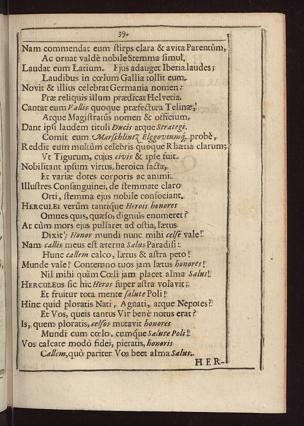 39.
Nam commendat eum stirps clara & avita Parentûm,
Ac ornat valdè nobile Stemma simul,
Laudat eum Latium. Ejus adauget Iberia laudes;
Laudibus in cœlum Gallia tollit eum.
Novit & illius celebrat Germania nomen:
Præ reliquis illum prædicat Helvetia.
Cantat eum Vallis quoque præfectura Telinæ,
Atque Magistratûs nomen & officium.
Dant ipsi laudem tituli Ducis atque Strategi.
Comit eum Marschlins, Elggovium, probè.
Reddit eum multùm celebris quoque Rhætia clarum;
Ut Tigurum, cujus civis & ipse fuit.
Nobilitant ipsum virtus, heroica facta,
Et variæ dotes corporis ac animi.
Illustres Consanguinei, de stemmate claro
Orti, stemma ejus nobile consociant.
HERCULEI verùm tantique Herois honores
Omnes quis, quæso, dignius enumeret?
At cùm mors ejus pulsaret ad ostia, lætus
Dixit; Honor mundi nunc mihi celse vale!
Nam callis meus est æterna Salus Paradisi:
Hunc callem calco, lætus & astra peto!
Munde vale! Contemno tuos jam lætus honores!
Nil mihi quàm Cœli jam placet alma Salus!
HERCULEUS sic hic Heros super astra volavit:
Et fruitur tota mente salute Poli!
Hinc quid ploratis Nati, Agnati, atque Nepotes?
Et Vos, queis tantus Vir benè notus erat?
Is, quem ploratis, celsos mutavit honores
Mundi cum cœlo, cumque Salute Poli!
Vos calcare modò fidei, pietatis, honoris
Callem, quò pariter Vos beet alma Salus.
HER-